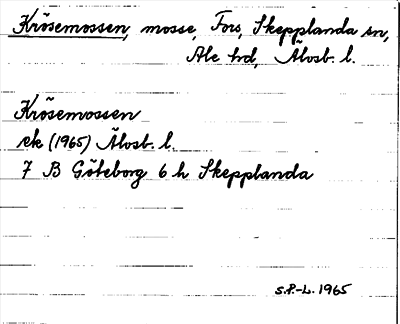 Krösemossen, mosse, Fors, Skepplanda sn,
Ale hd, Älvsb. l.
Krösemossen
ek (1965) Älvsb. l.
7 B Göteborg 6 h Skepplanda
S.P.-L. 1965